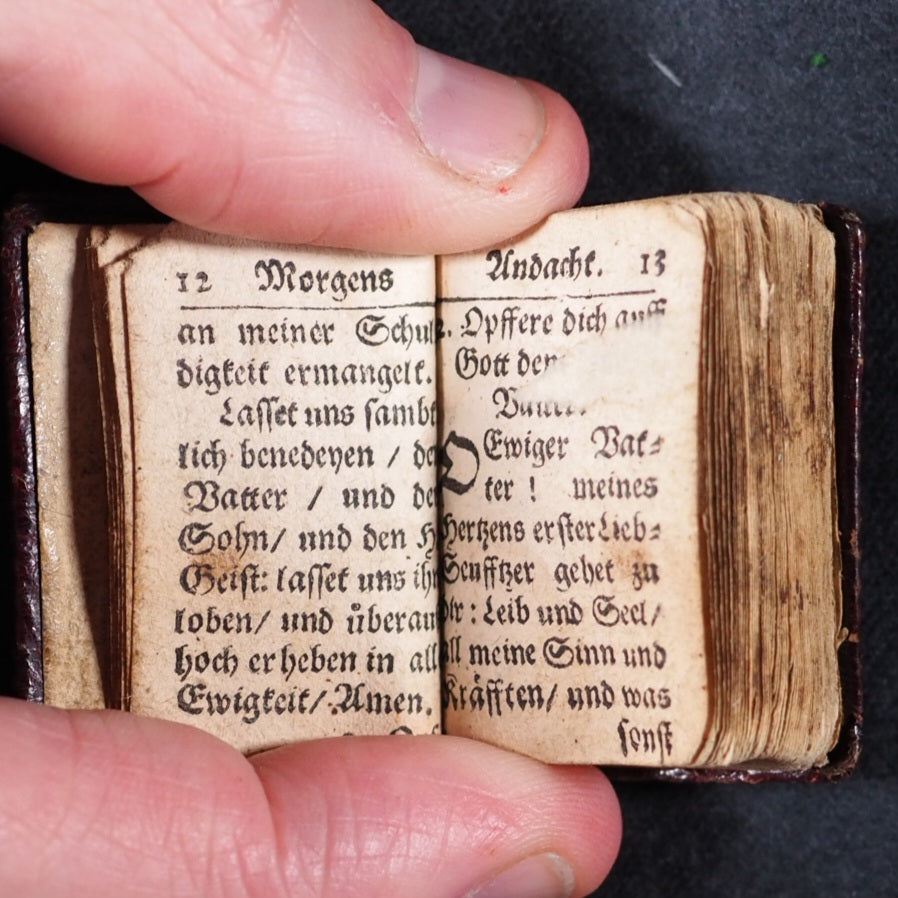 12 Morgens
an meiner Schul
digkeit ermangelt.
Lasset uns sambt
lich benedeyen /
Vatter / und
Sohn/ und den H
Geist: lasset uns
loben/ und überau
hoch erheben in all
Ewigkeit/ Amen.
Andacht. 13
2. Opffere dich auff
Gott
O Ewiger Vat-
ter ! meines
Hertzens erster Lieb-
Seufftzer gehet zu
dir: Leib und Seel/
all meine Sinn und
Kräfften/ und was
sonst